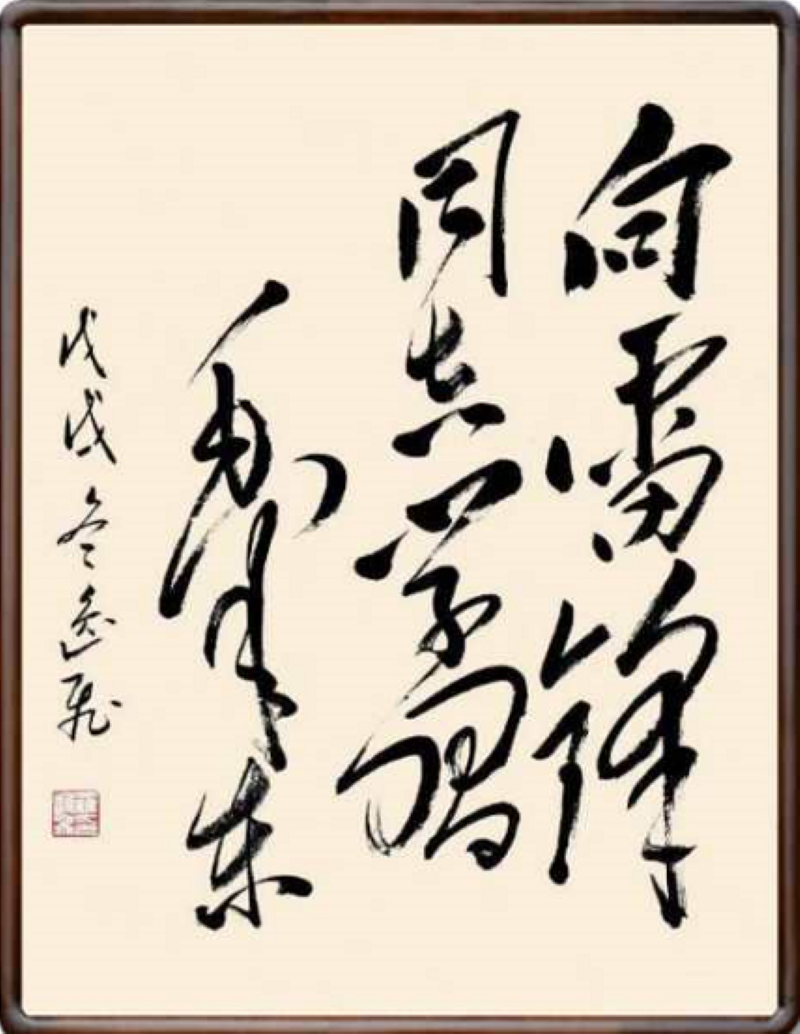 向雷锋
同志学习
毛泽东
戊戌冬